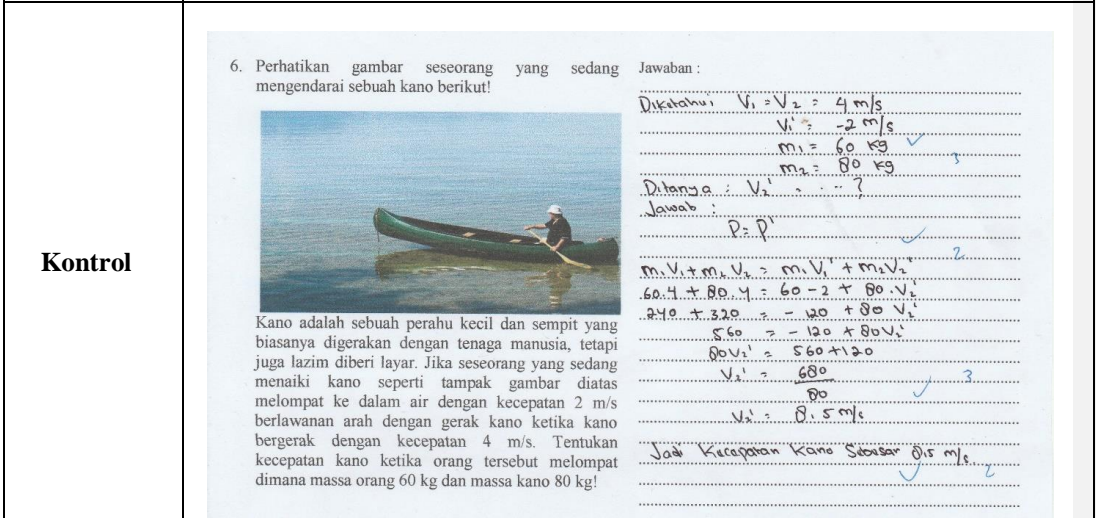 Kontrol
6. Perhatikan gambar seseorang yang sedang
mengendarai sebuah kano berikut!
Kano adalah sebuah perahu kecil dan sempit yang
biasanya digerakan dengan tenaga manusia, tetapi
juga lazim diberi layar. Jika seseorang yang sedang
menaiki kano seperti tampak gambar diatas
melompat ke dalam air dengan kecepatan 2 m/s
berlawanan arah dengan gerak kano ketika kano
bergerak dengan kecepatan 4 m/s. Tentukan
kecepatan kano ketika orang tersebut melompat
dimana massa orang 60 kg dan massa kano 80 kg!
Jawaban :
Diketahui V₁ = V₂ = 4 m/s
V₁' = -2 m/s
m₁ = 60 kg ✓
m₂ = 80 kg 3
Ditanya : V₂' ....?
Jawab :
P = P' ✓
2
m₁V₁ + m₂V₂ = m₁V₁' + m₂V₂'
60.4 + 80.4 = 60 -2 + 80.V₂'
240 + 320 = - 120 + 80 V₂'
560 = - 120 + 80V₂'
80V₂' = 560 + 120
V₂' = 680 3
80 ✓
V₂' = 8.5 m/s
Jadi Kecepatan Kano Sebesar 8,5 m/s.
✓ 2